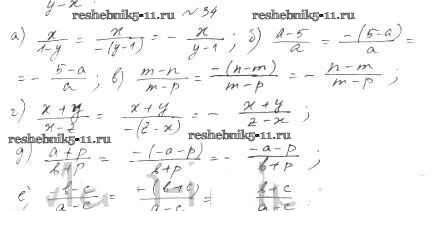 y-x
reshebnik5-11.ru №34 reshebnik5-11.ru
а) x/(1-y) = x/(-(y-1)) = - x/(y-1) ; б) (a-5)/a = (-(5-a))/a =
= - (5-a)/a ; в) (m-n)/(m-p) = (-(n-m))/(m-p) = - (n-m)/(m-p) ;
г) (x+y)/(x-z) = (x+y)/(-(z-x)) = - (x+y)/(z-x) ;
reshebnik5-11.ru reshebnik5-11.ru
д) (a+p)/(b+p) = (-(-a-p))/(b+p) = - (-a-p)/(b+p) ;
е) (-b-c)/(a-c) = (-(b+c))/(a-c) = (b+c)/(a-c)